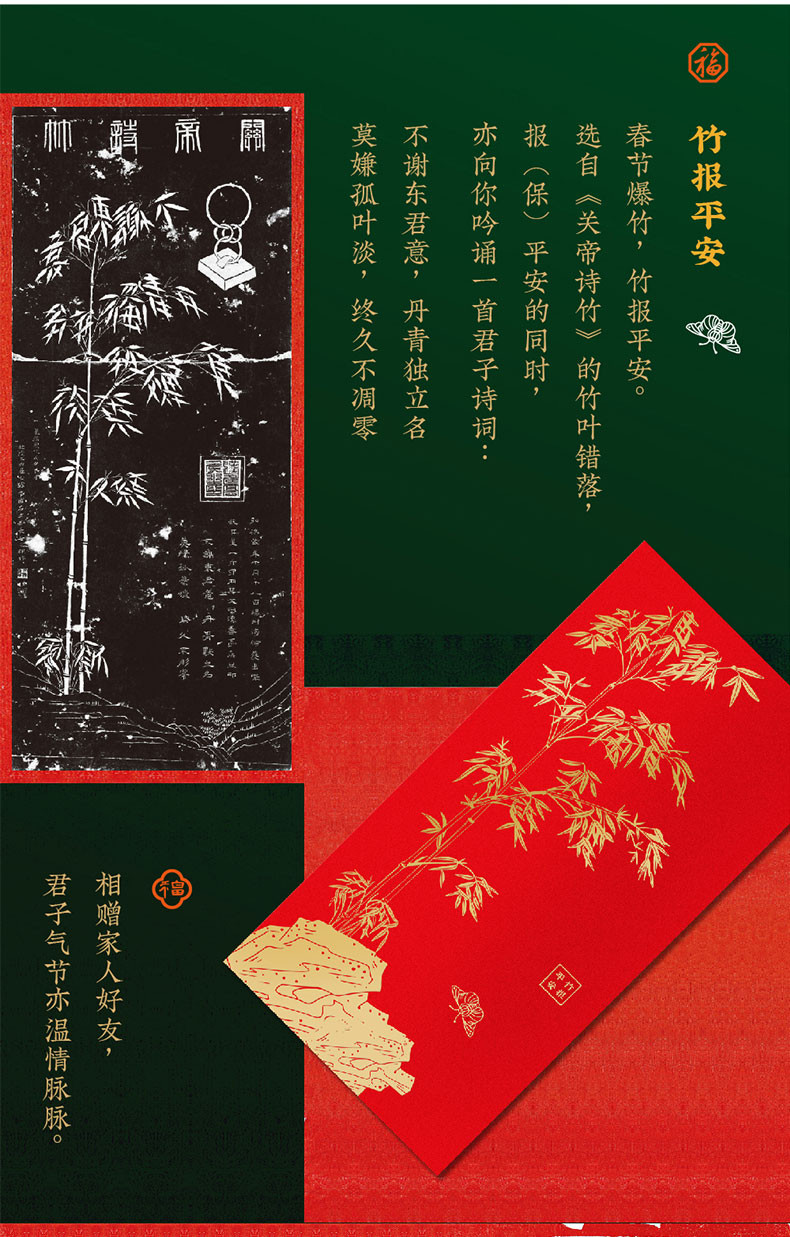 福
竹报平安
春节爆竹，竹报平安。
选自《关帝诗竹》的竹叶错落，
报（保）平安的同时，
亦向你吟诵一首君子诗词：
不谢东君意，丹青独立名
莫嫌孤叶淡，终久不凋零
關帝詩竹
竹报平安
福
相赠家人好友，
君子气节亦温情脉脉。